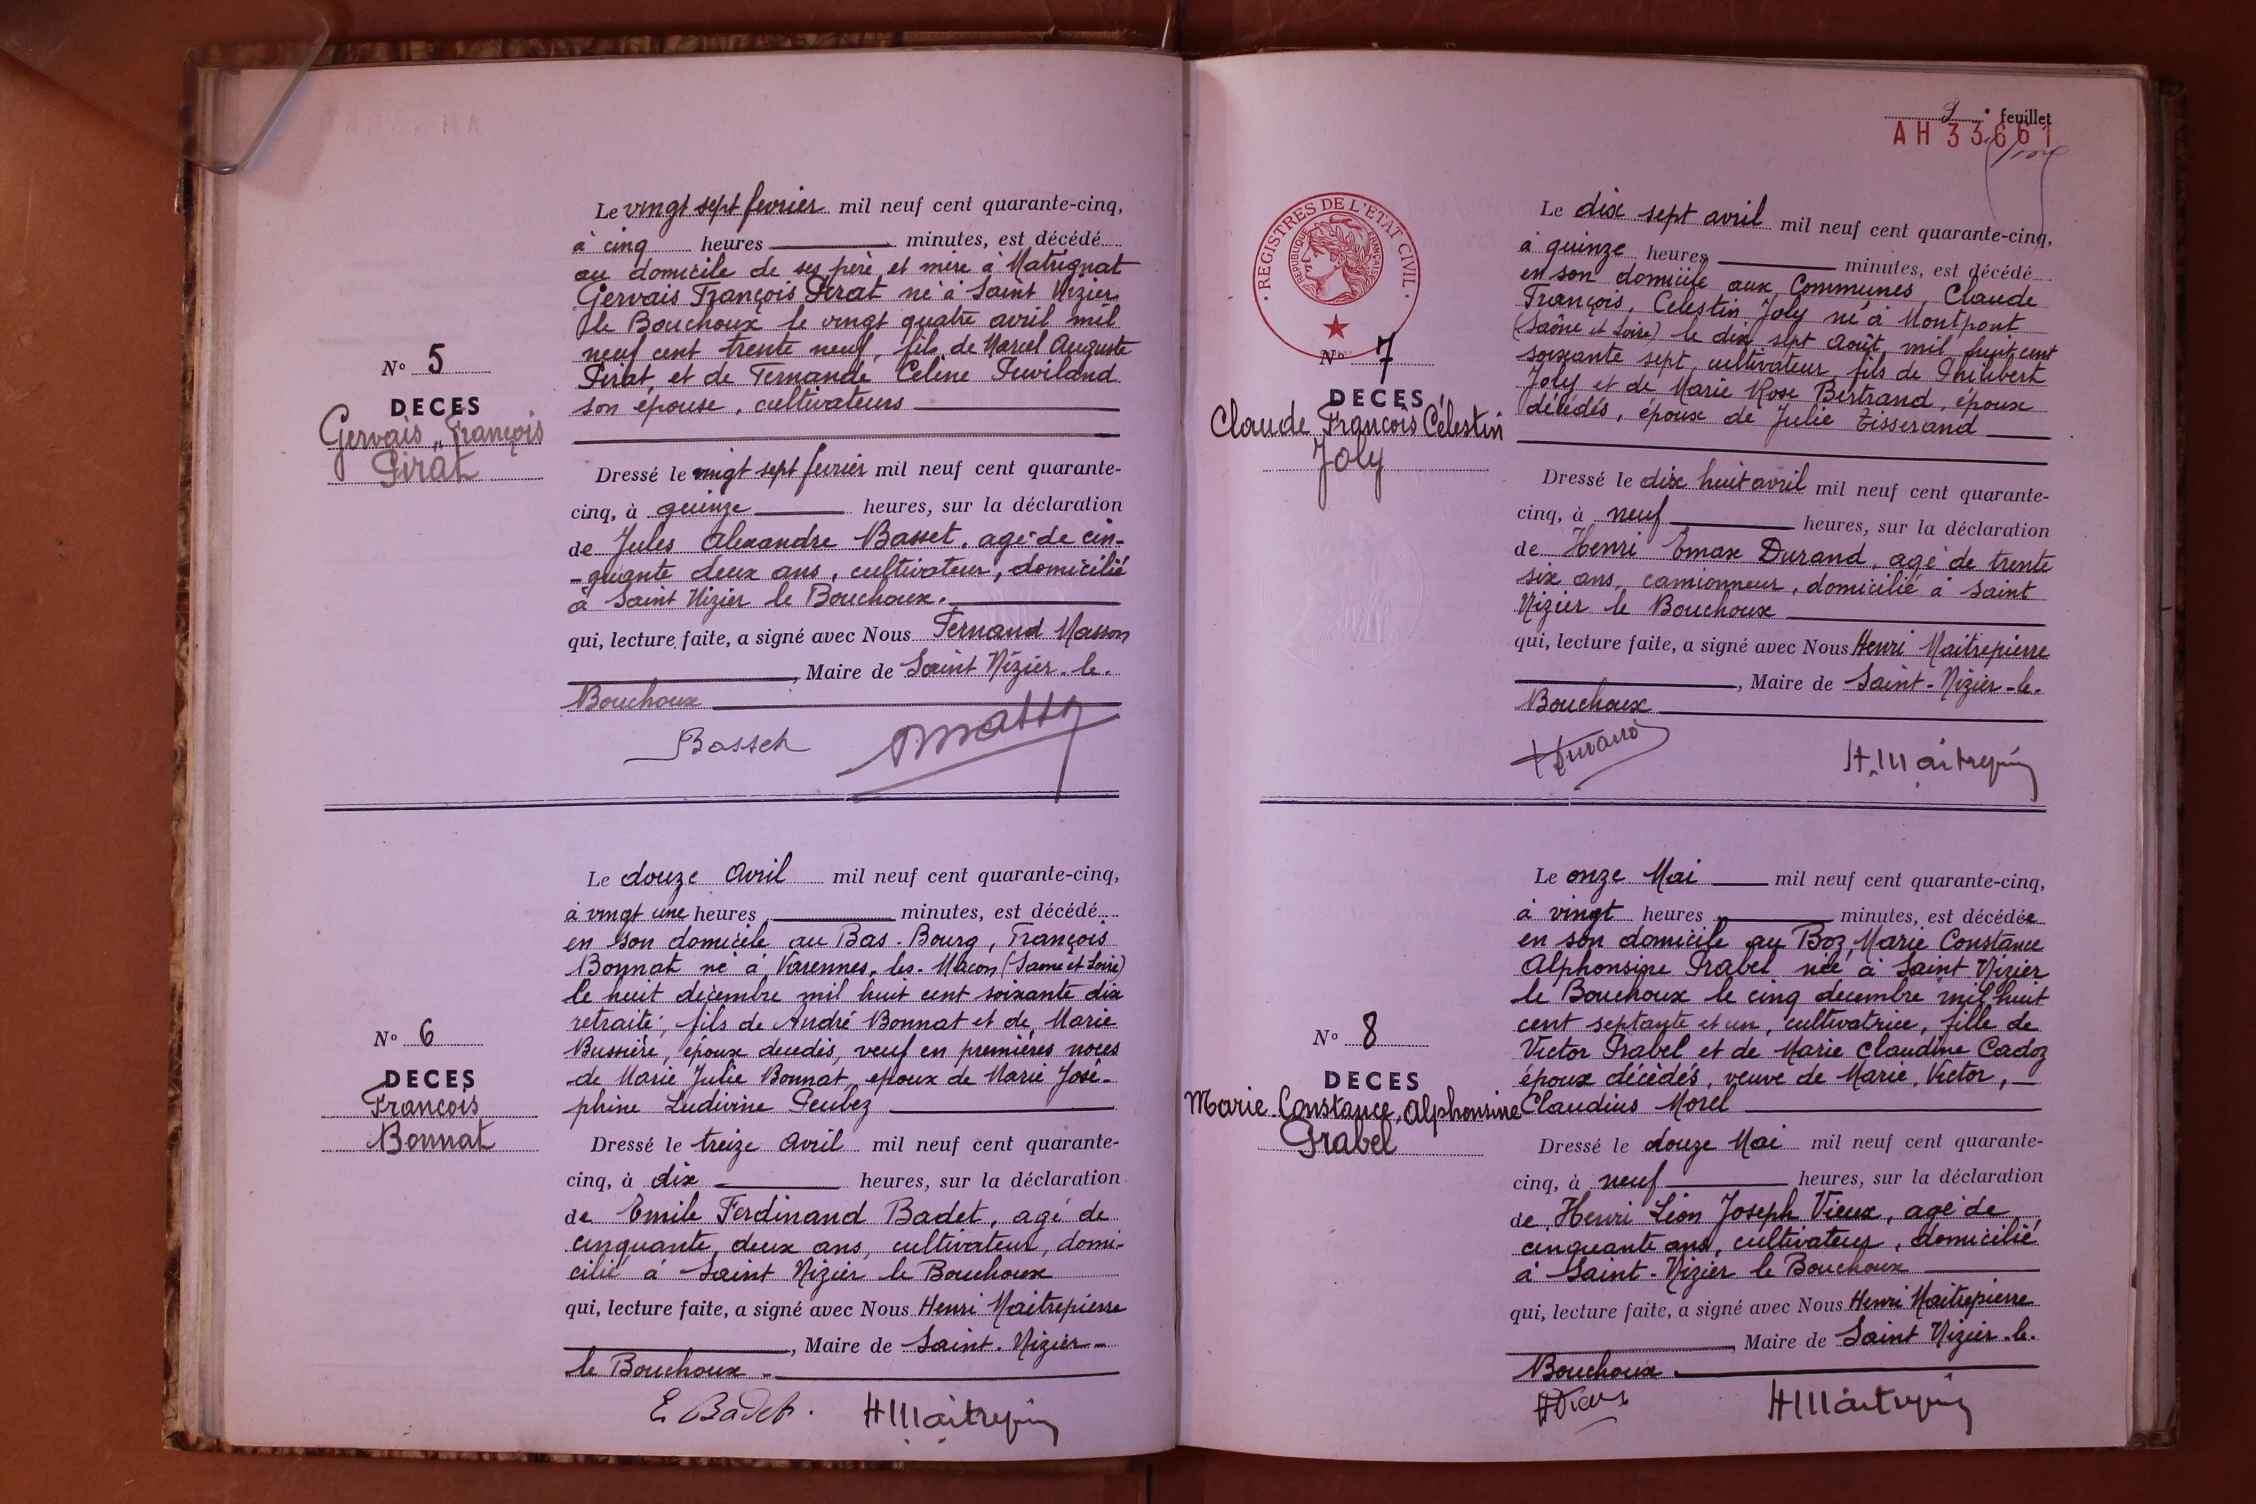 Le vingt sept fevrier mil neuf cent quarante-cinq,
à cinq heures minutes, est décédé
au domicile de ses père et mère à Matrignat
Gervais François Pirat né à Saint Nizier
le Bouchoux le vingt quatre avril mil
neuf cent trente neuf, fils de Marcel Auguste
Pirat et de Fernande Celine
son épouse, cultivateurs
N° 5
DECES
Gervais François
Pirat
Dressé le vingt sept fevrier mil neuf cent quarante-
cinq, à quinze heures, sur la déclaration
de Jules Alexandre Basset, agé de cin-
-quante deux ans, cultivateur, domicilié
à Saint Nizier le Bouchoux.
qui, lecture faite, a signé avec Nous Fernand Masson
, Maire de Saint Nizier-le-
Bouchoux
Basset
Le douze Avril mil neuf cent quarante-cinq,
à vingt une heures minutes, est décédé
en son domicile au Bas-Bourg, François
Bonnat né à Varennes-les-Macon (Saone et Loire)
le huit decembre mil huit cent soixante dix
retraité, fils de André Bonnat et de Marie
Bussière, époux decedés, veuf en premières noces
de Marie Julie Bonnat, epoux de Marie José-
phine Ludivine
N° 6
DECES
François
Bonnat
Dressé le treize Avril mil neuf cent quarante-
cinq, à dix heures, sur la déclaration
de Emile Ferdinand Badet, agé de
cinquante deux ans, cultivateur, domi-
cilié à Saint Nizier le Bouchoux
qui, lecture faite, a signé avec Nous Henri Maitrepierre
, Maire de Saint-Nizier-
le Bouchoux.
E. Badet. H Maitrepierre
9e feuillet
AH 33661
REGISTRES DE L'ETAT CIVIL
REPUBLIQUE FRANÇAISE
Le dix sept avril mil neuf cent quarante-cinq,
à quinze heures minutes, est décédé
en son domicile aux Communes, Claude
François, Celestin Joly né à Montpont
(Saône et Loire) le dix sept Août mil huit cent
soixante sept, cultivateur, fils de Philibert
Joly et de Marie Rose Bertrand, époux
décédés, époux de Julie Tisserand
N° 7
DECES
Claude François Célestin
Joly
Dressé le dix huit avril mil neuf cent quarante-
cinq, à neuf heures, sur la déclaration
de Henri Emax Durand, agé de trente
six ans, camionneur, domicilié à Saint
Nizier le Bouchoux
qui, lecture faite, a signé avec Nous Henri Maitrepierre
, Maire de Saint-Nizier-le-
Bouchoux
H Durand H. Maitrepierre
Le onze Mai mil neuf cent quarante-cinq,
à vingt heures minutes, est décédée
en son domicile au Boz, Marie Constance
Alphonsine Prabel née à Saint Nizier
le Bouchoux le cinq decembre mil huit
cent septante et un, cultivatrice, fille de
Victor Prabel et de Marie Claudine Cadoz
époux décédés, veuve de Marie, Victor,
Claudius Morel
N° 8
DECES
Marie Constance, Alphonsine
Prabel
Dressé le douze Mai mil neuf cent quarante-
cinq, à neuf heures, sur la déclaration
de Henri Léon Joseph Vieux, agé de
cinquante ans, cultivateur, domicilié
à Saint-Nizier le Bouchoux
qui, lecture faite, a signé avec Nous Henri Maitrepierre
, Maire de Saint Nizier-le-
Bouchoux.
H Vieux H Maitrepierre